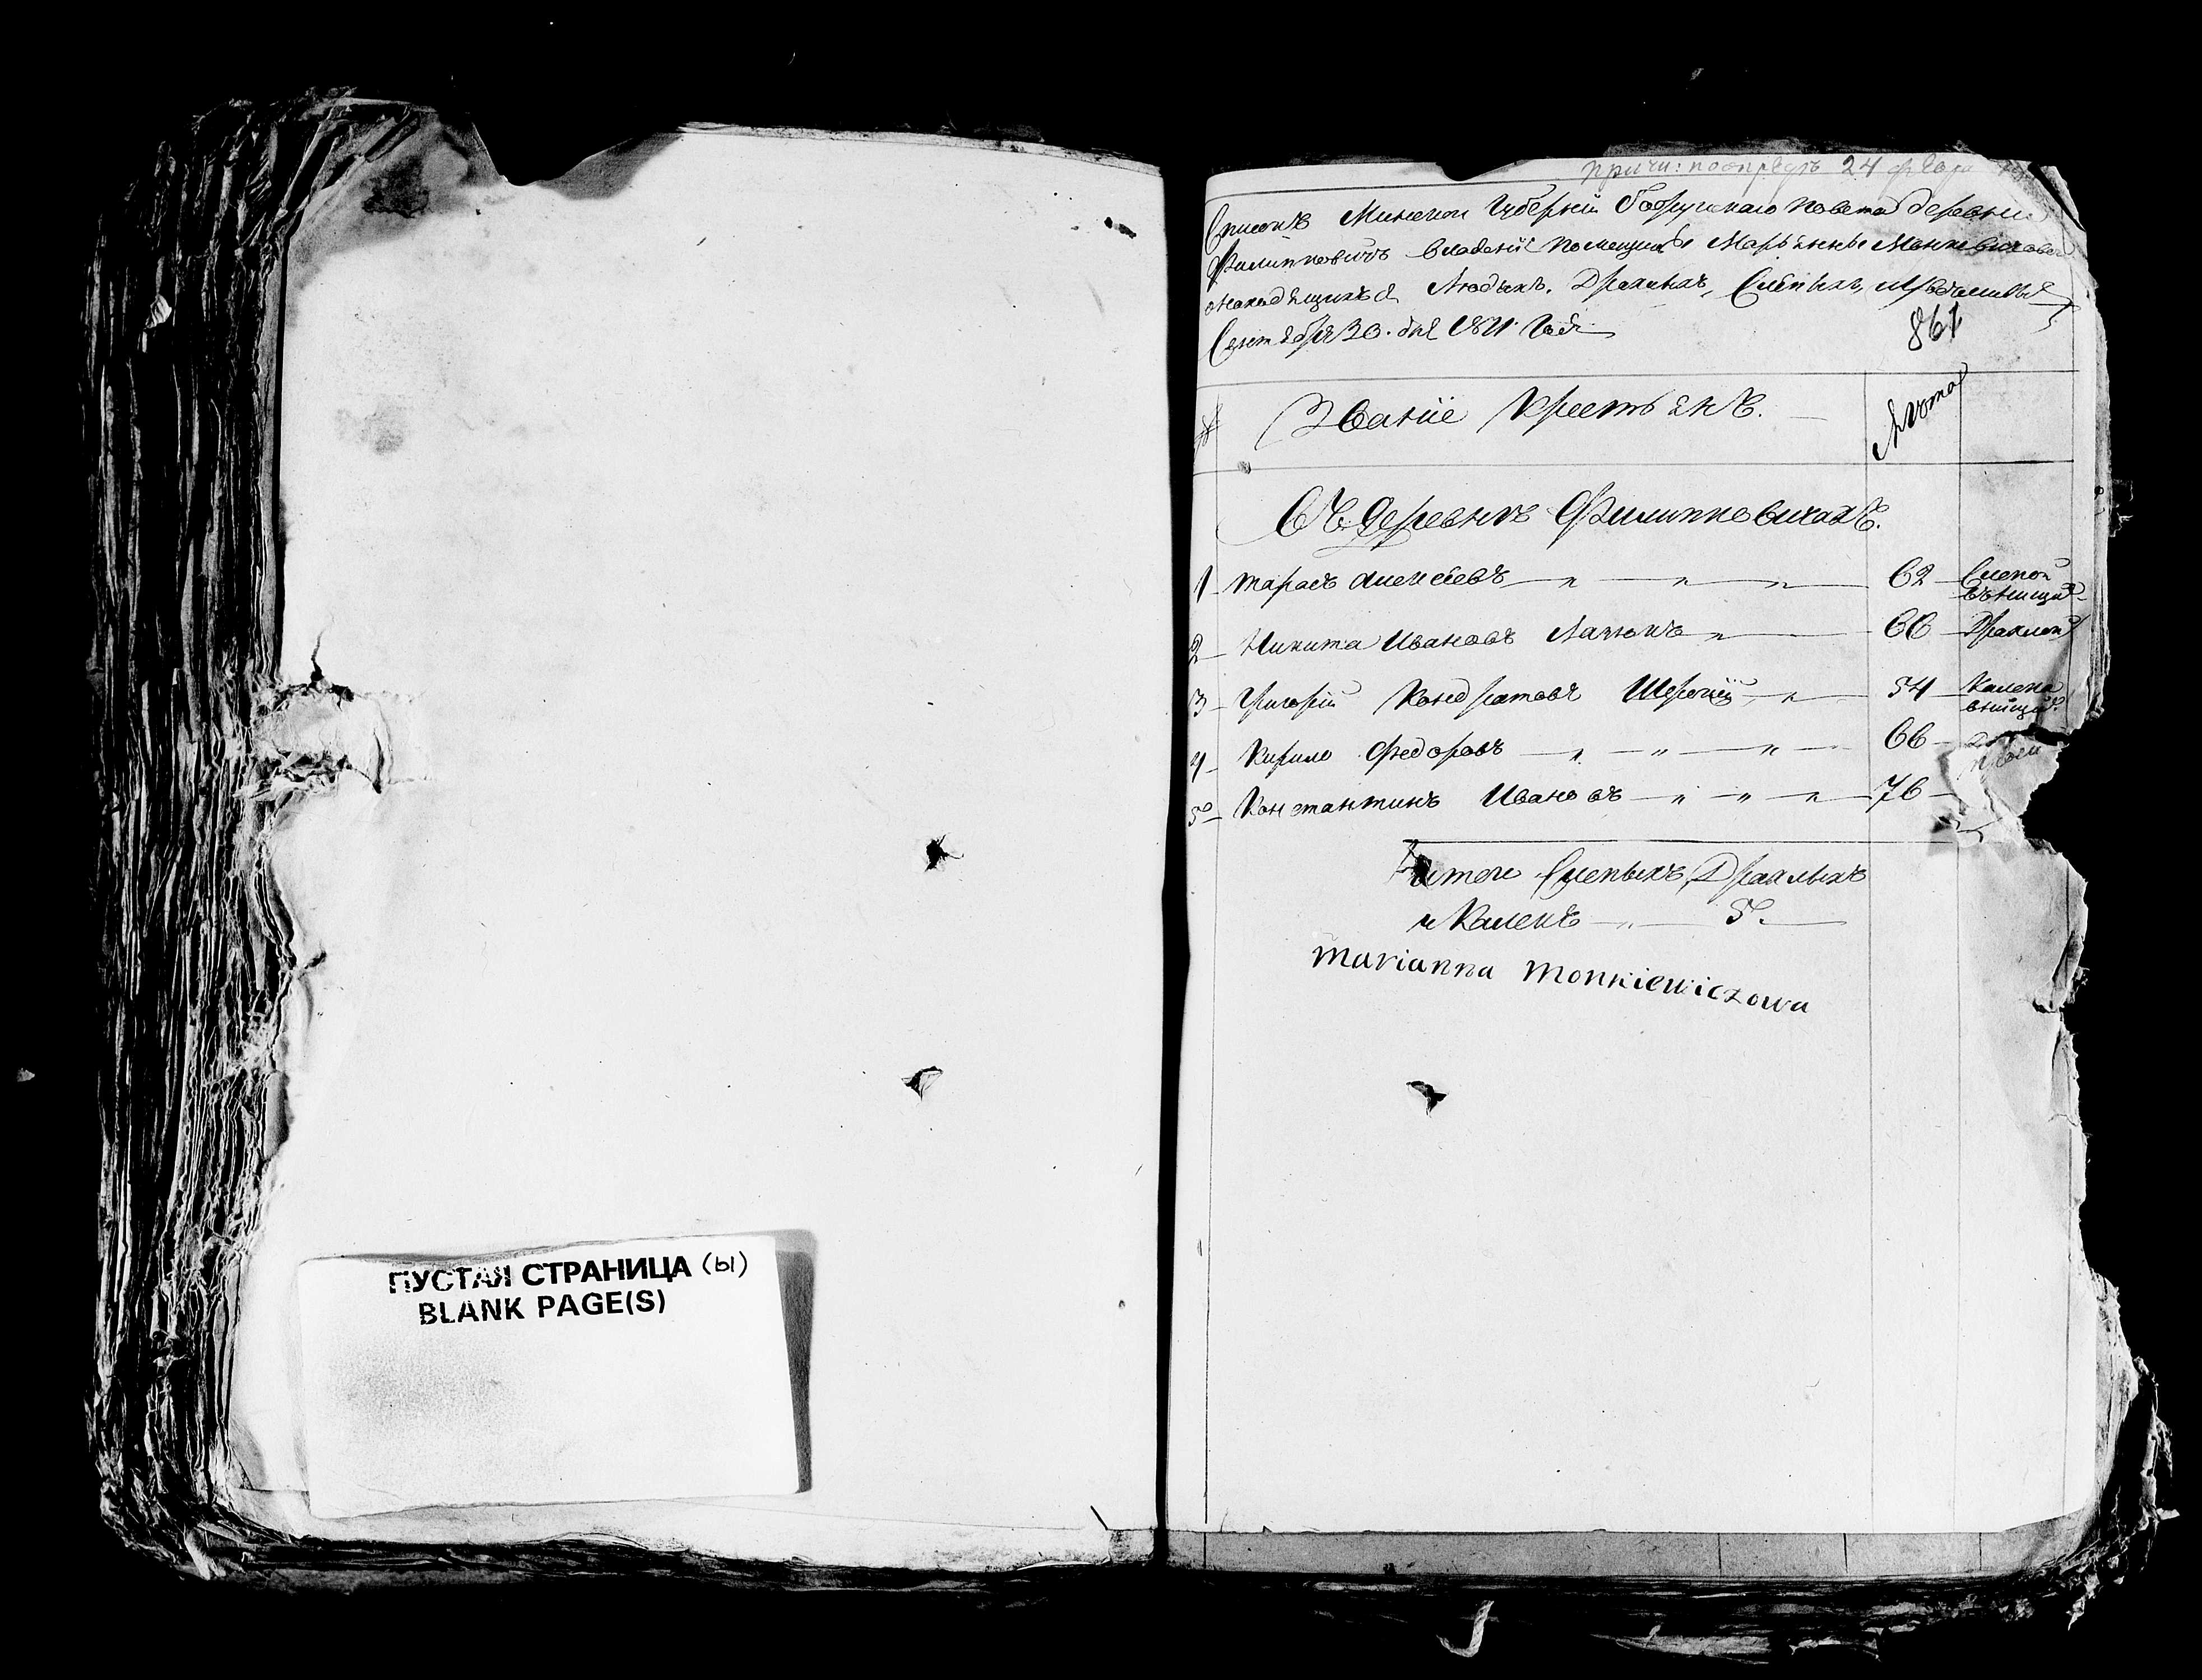 ПУСТАЯ СТРАНИЦА (ы)
BLANK PAGE(S)
24
Списокъ Минской Губерніи Бобруйскаго повета деревни
Филипковичъ владенія помещицы Марьянны Монкевичовой
находящихся Людехъ, Дряхлых, Слепых,
Сентября 30. дня 1811 Года
861
№ Званіе Крестьянъ. Лѣта
Въ Деревнѣ Филипковичахъ.
1 Тарасъ Алексеевъ — „ — „ — „ — 62 Слепой
внищи
2 Никита Ивановъ „ — 66 Дряхлой
3 Григорій Кондратовъ — „ — 54 Калека
внищи
4 Кирило Федоровъ — „ — „ — „ — 66
5 Константинъ Ивановъ — „ — „ — „ — 76
Итого Слепыхъ, Дряхлыхъ
и Калекъ — „ — 5.
Marianna Monkiewiczowa